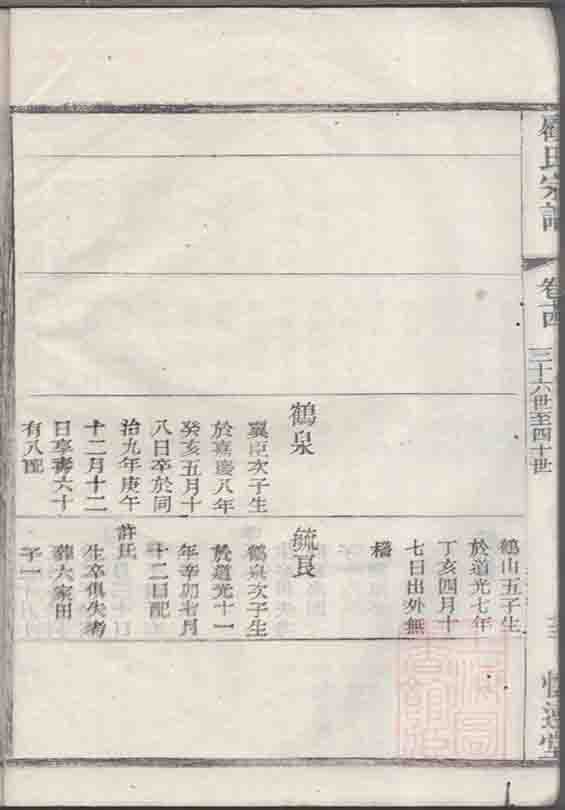 氏宗譜
卷十四
三十六世至四十世
鶴泉
翼臣次子生
於嘉慶八年
癸亥五月十
八日卒於同
治九年庚午
十二月十二
日享壽六十
有八配
鶴山五子生
於道光七年
丁亥四月十
七日出外無
稽
毓良
鶴泉次子生
於道光十一
年辛卯七月
十二日配
許氏
生卒俱失考
葬六家田
子一